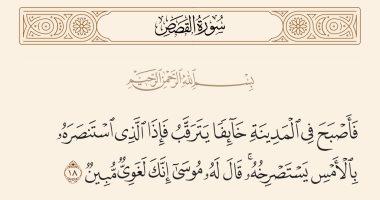 سُورَةُ القَصَصِ
بِسْمِ اللَّهِ الرَّحْمَٰنِ الرَّحِيمِ
فَأَصْبَحَ فِي ٱلْمَدِينَةِ خَآئِفًا يَتَرَقَّبُ فَإِذَا ٱلَّذِى ٱسْتَنصَرَهُۥ
بِٱلْأَمْسِ يَسْتَصْرِخُهُۥۚ قَالَ لَهُۥ مُوسَىٰٓ إِنَّكَ لَغَوِىٌّ مُّبِينٌ ١٨